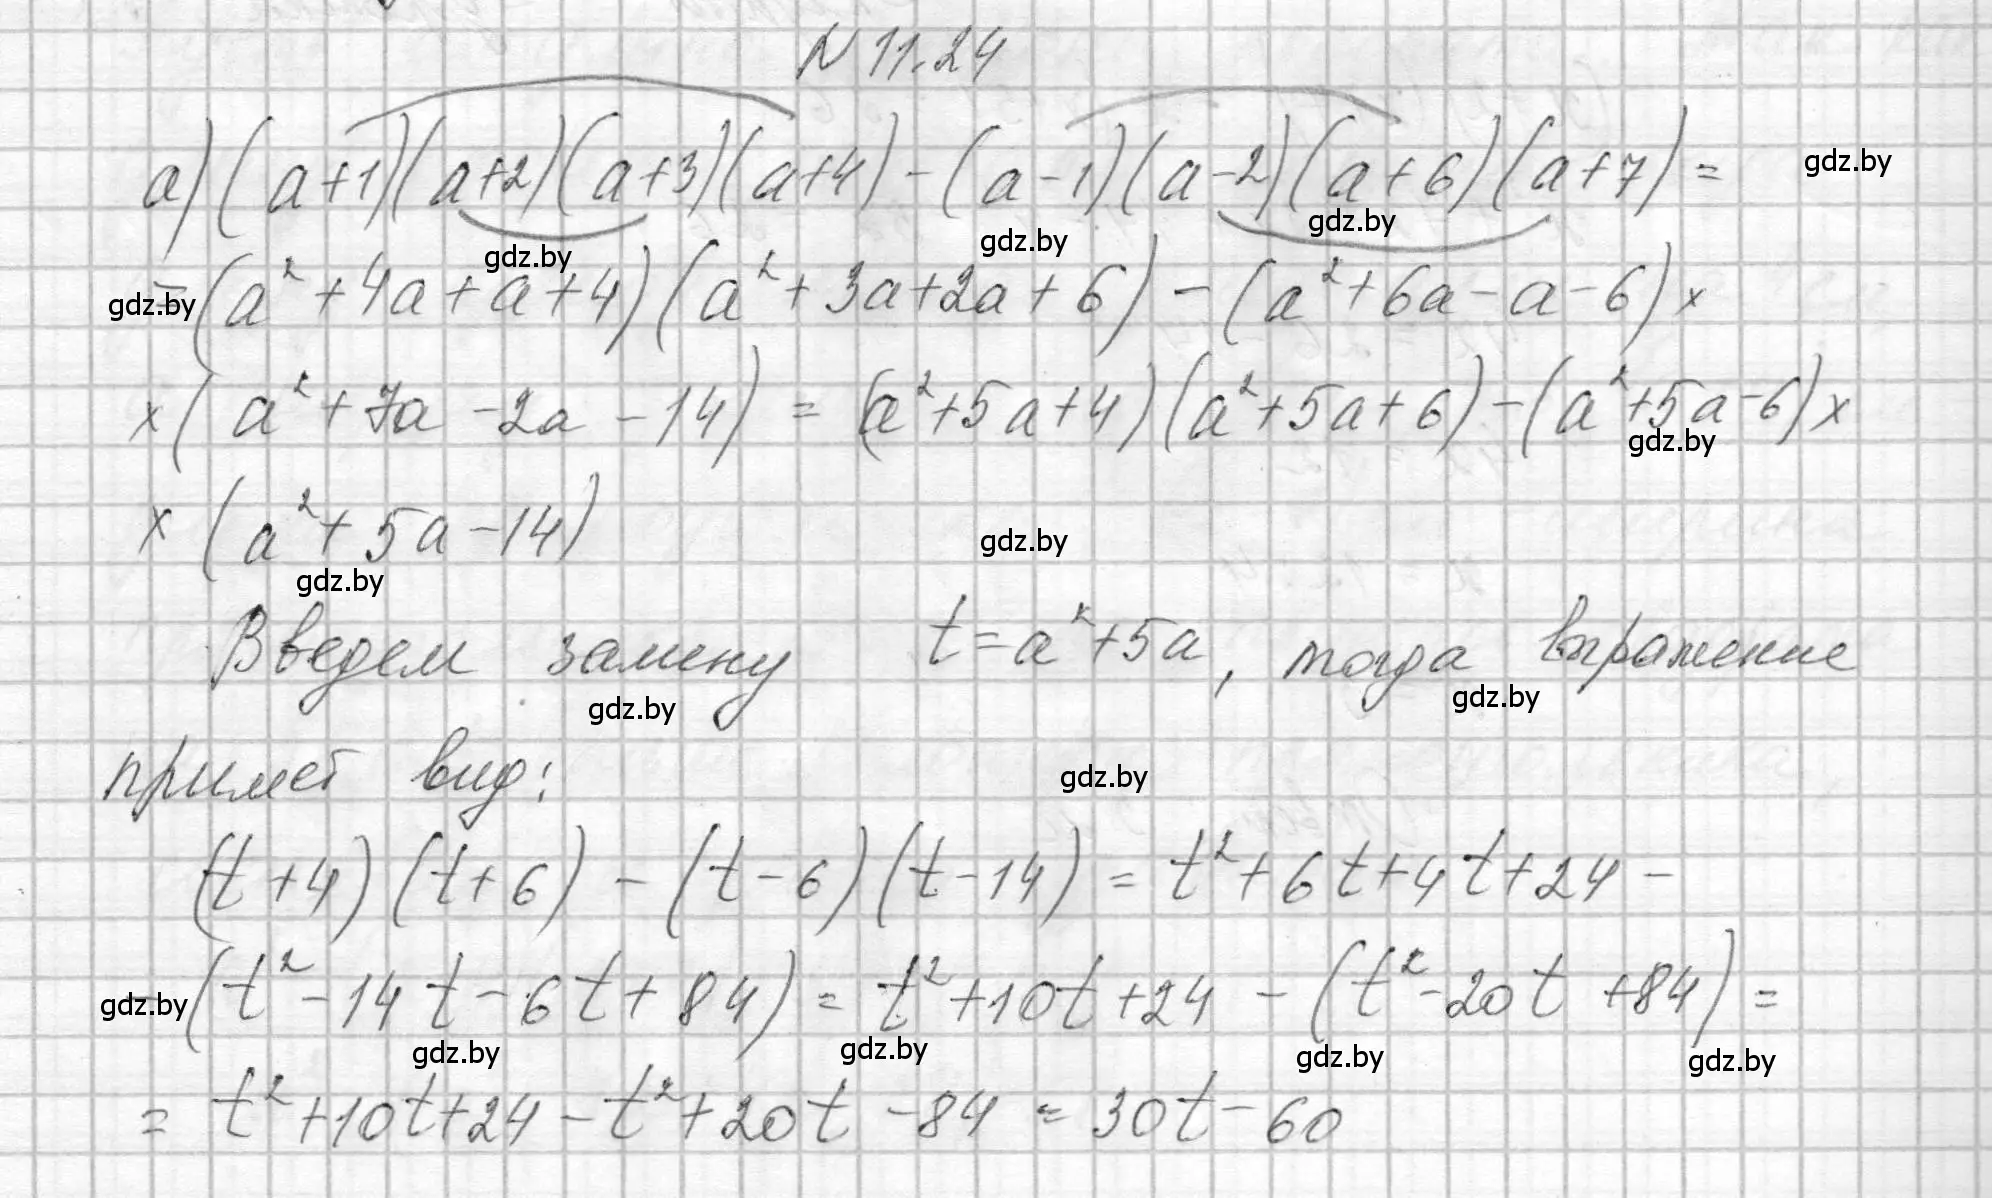 N 11.24
а) (a+1)(a+2)(a+3)(a+4) - (a-1)(a-2)(a+6)(a+7) =
gdz.by
gdz.by
gdz.by
gdz.by
= (a²+4a+a+4)(a²+3a+2a+6) - (a²+6a-a-6) ×
gdz.by
× (a²+7a-2a-14) = (a²+5a+4)(a²+5a+6) - (a²+5a-6) ×
gdz.by
× (a²+5a-14)
gdz.by
gdz.by
Введем замену t=a²+5a, тогда выражение
gdz.by
gdz.by
примет вид:
gdz.by
(t+4)(t+6) - (t-6)(t-14) = t²+6t+4t+24 -
- (t²-14t-6t+84) = t²+10t+24 - (t²-20t+84) =
gdz.by
gdz.by
gdz.by
gdz.by
gdz.by
= t²+10t+24-t²+20t-84 = 30t-60